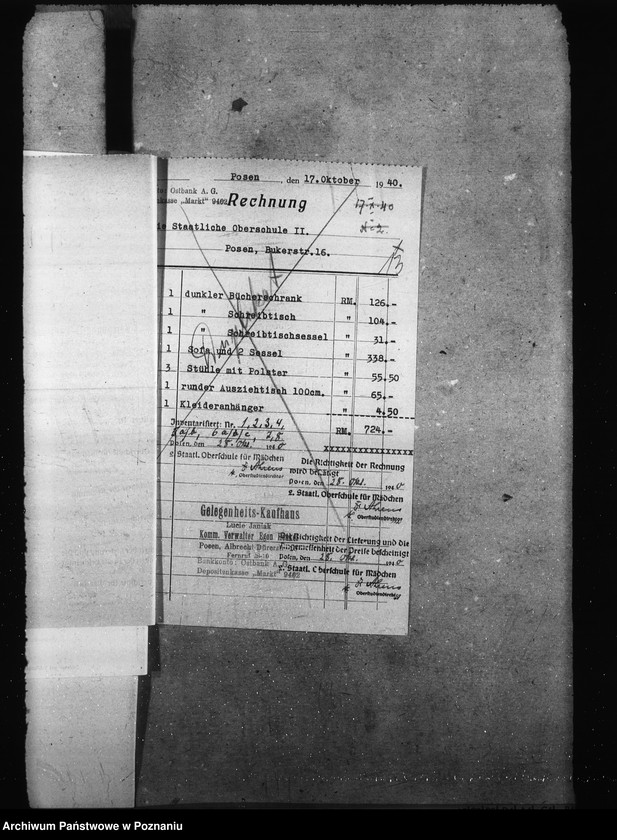 Posen, den 17.Oktober 1940.
Ostbank A. G.
"Markt" 9402
Rechnung
17.X.40
Staatliche Oberschule II.
Posen, Bukerstr.16.
1 dunkler Bücherschrank RM. 126.-
1 " Schreibtisch " 104.-
1 " Schreibtischsessel " 31.-
1 Sofa und 2 Sessel " 338.-
3 Stühle mit Polster " 55.50
1 runder Ausziehtisch 100cm. " 65.-
1 Kleideranhänger " 4.50
RM. 724.-
xxxxxxxxxxxxxxxx
Inventarisiert: Nr. 1, 2, 3, 4,
5 a/b, 6 a/b/c, 7, 8.
Posen, den 28. Okt. 1940
2. Staatl. Oberschule für Mädchen
Oberstudiendirektor
Die Richtigkeit der Rechnung
wird bestätigt
Posen, den 28. Okt. 1940
2. Staatl. Oberschule für Mädchen
Oberstudiendirektor
Gelegenheits-Kaufhaus
Lucie Janiak
Komm. Verwalter Egon
Posen, Albrecht Dürerstr.
Fernruf
Bankkonto: Ostbank A.G.
Depositenkasse "Markt" 9402
Die Richtigkeit der Lieferung und die
Angemessenheit der Preise bescheinigt
Posen, den 28. Okt. 1940
2. Staatl. Oberschule für Mädchen
Oberstudiendirektor
Archiwum Państwowe w Poznaniu